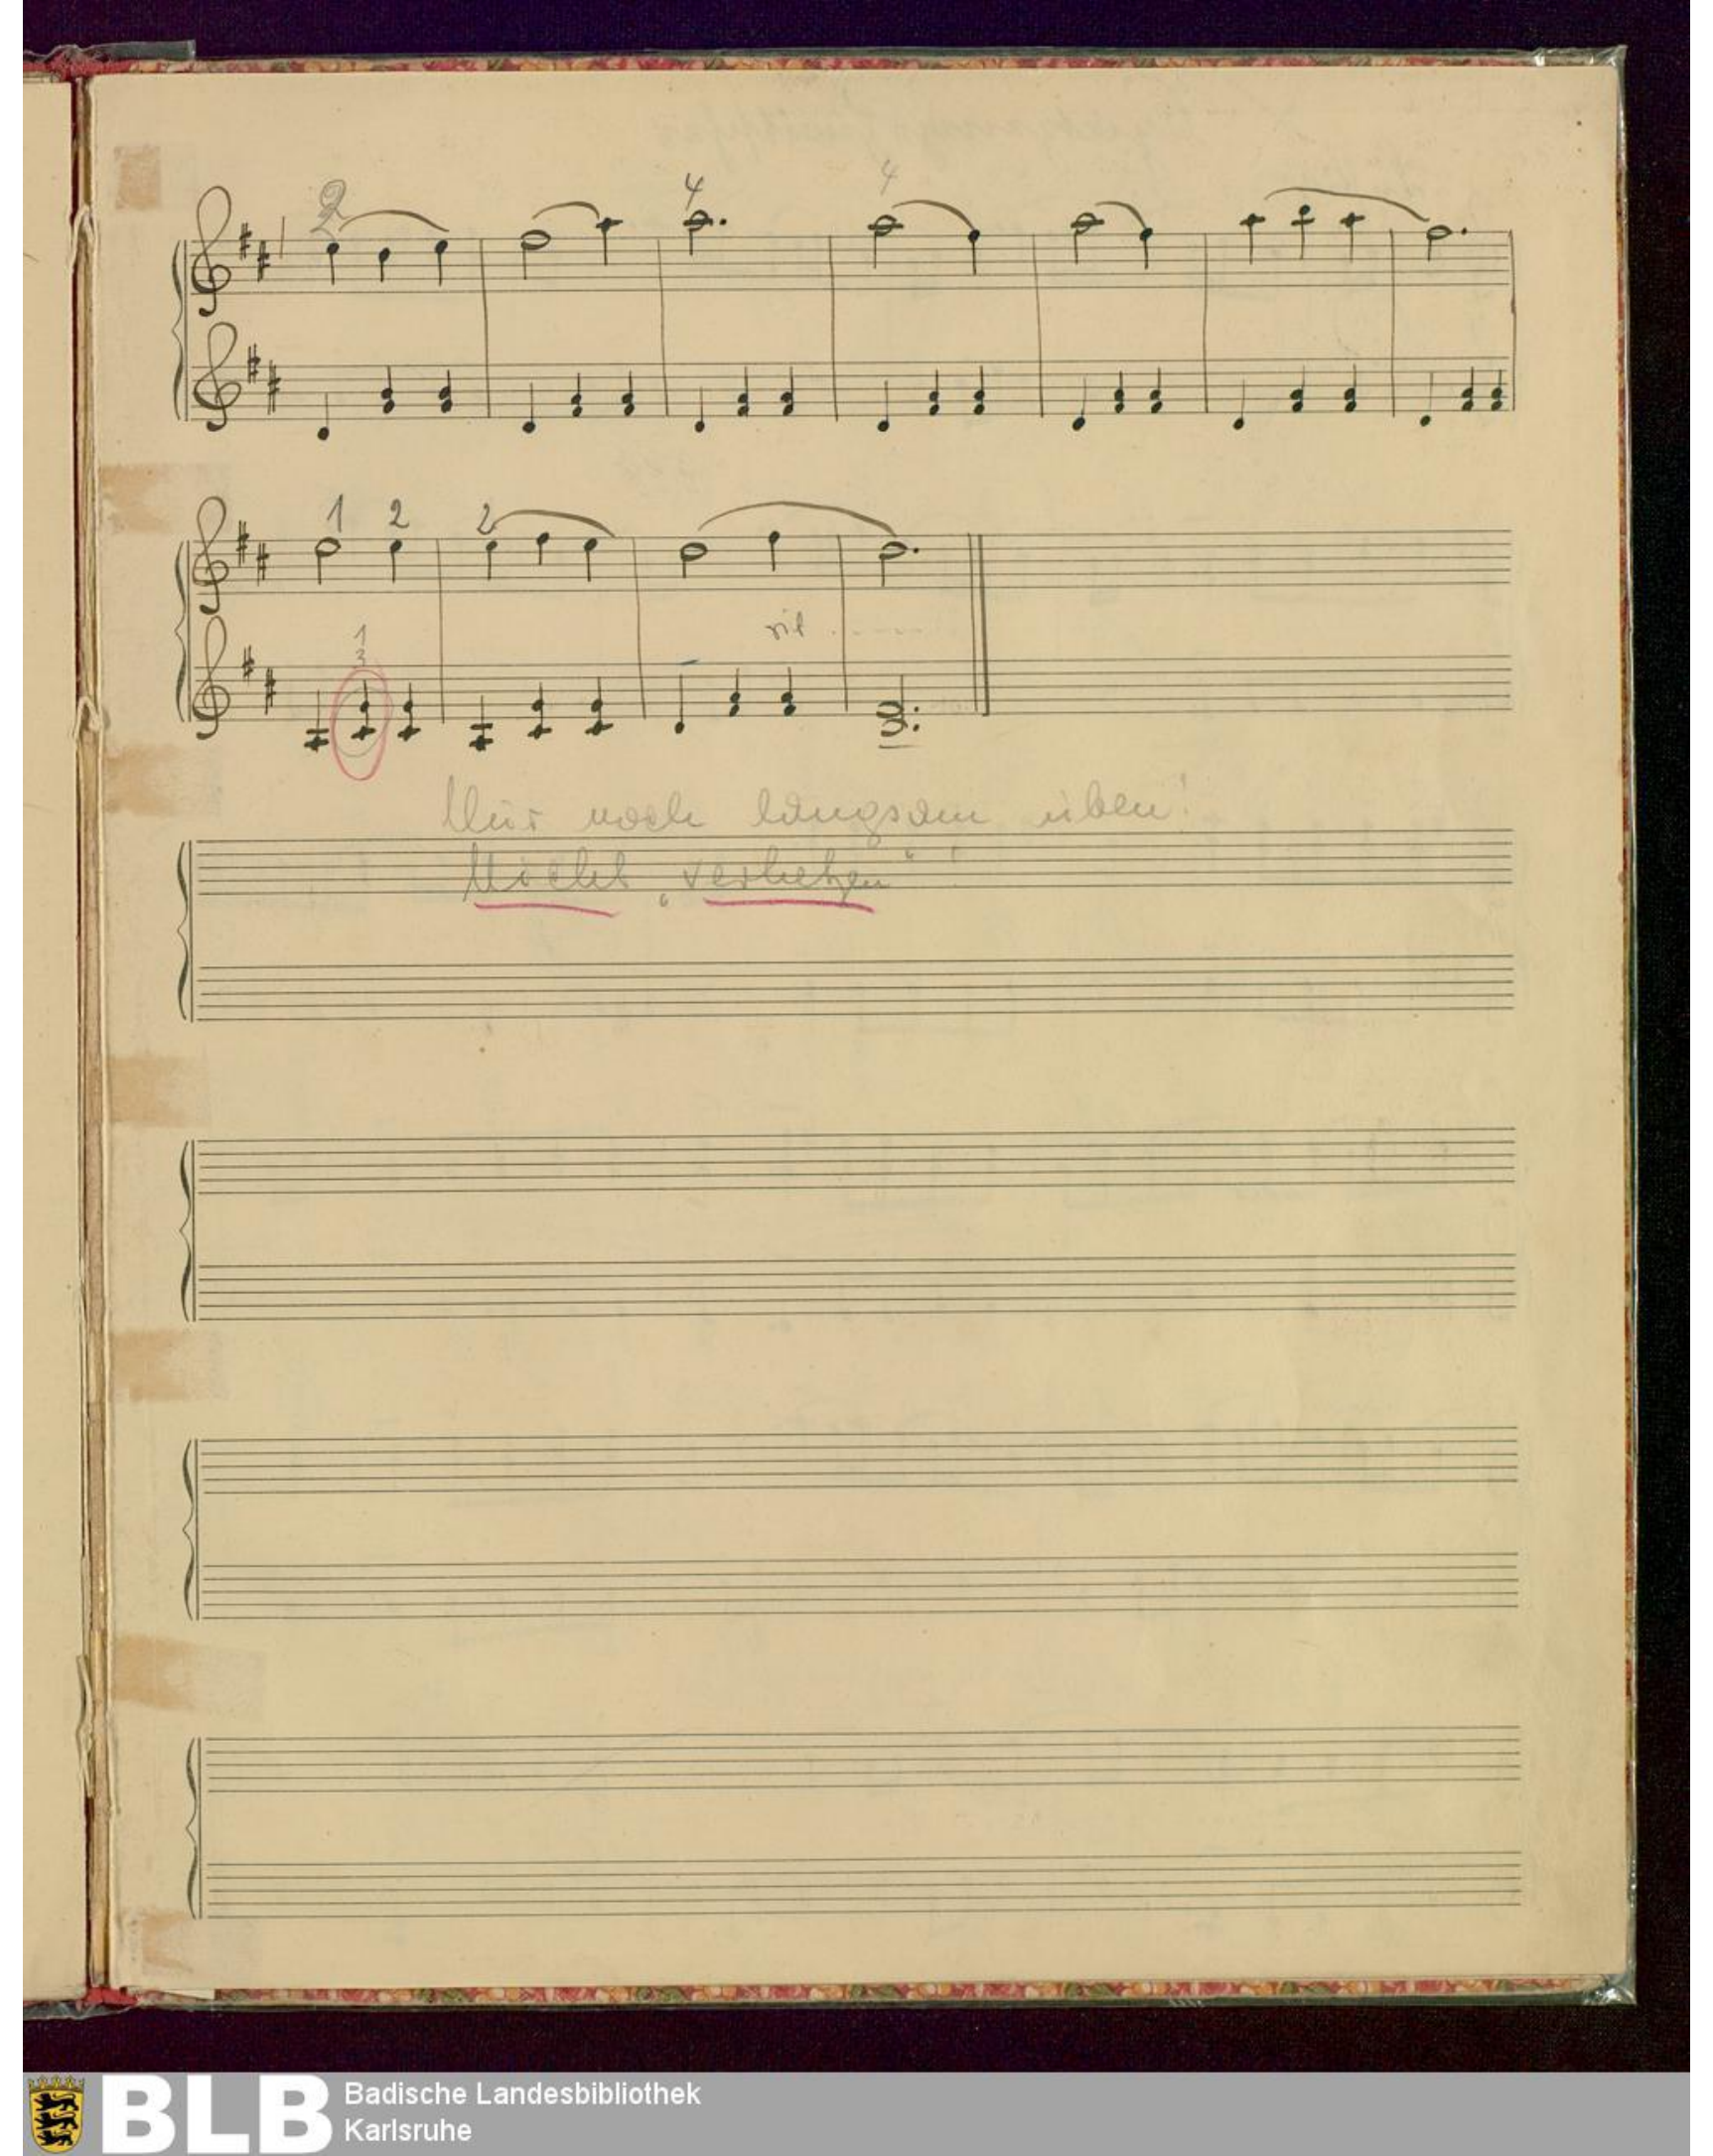 2 4 4
1 2 2
1
3
rit.......
Nur noch langsam üben!
Nicht „verhetzen“!
BLB Badische Landesbibliothek
Karlsruhe